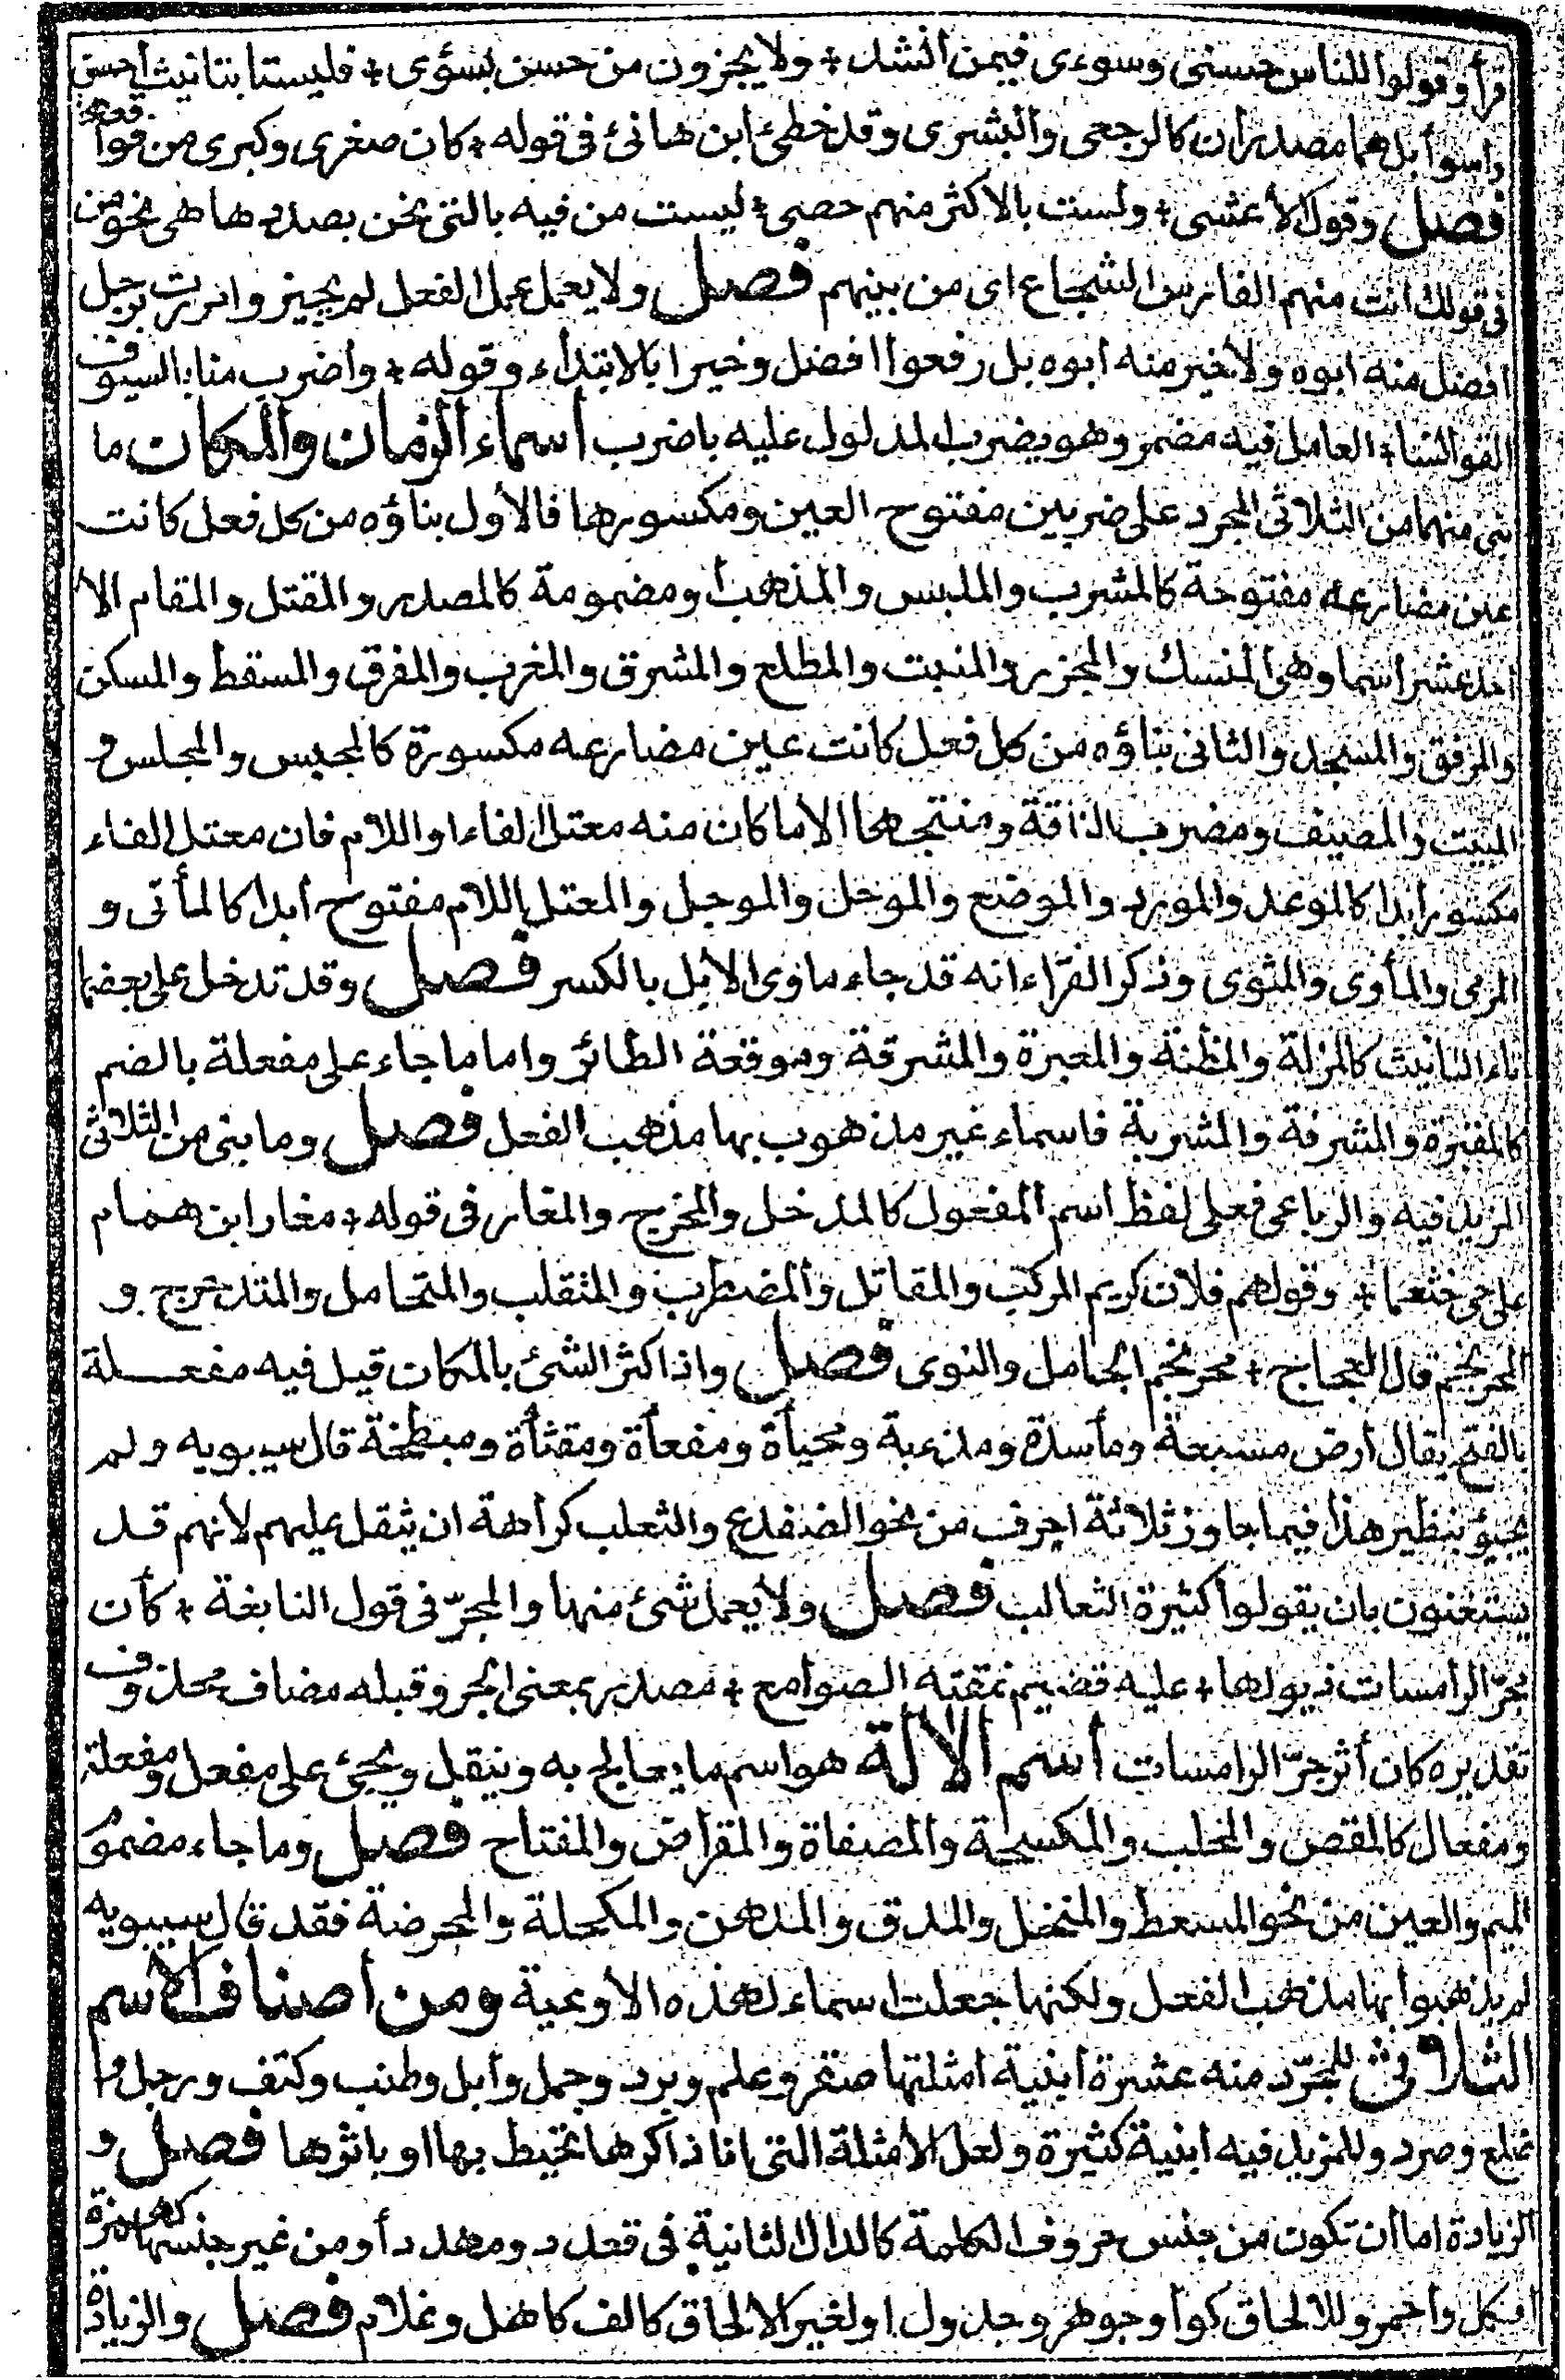 قرأ وقولوا للناس حسنى وسوءى فيمن انشد ÷ ولا يجزون من حسن بسؤى ÷ فليستا بتانيث أحسن
واسوأ بل هما مصدران كالرجعى والبشرى وقد خطئ ابن هانئ فى قوله ÷ كان صغرى وكبرى من فواقعها
فصل وقول الأعشى ÷ ولست بالاكثر منهم حصى ÷ ليست من فيه بالتى نحن بصددها هى نحو من
فى قولك انت منهم الفارس الشجاع اى من بينهم فصل ولا يعمل عمل الفعل لم يجيزوا مررت برجل
افضل منه ابوه ولا خير منه ابوه بل رفعوا افضل وخيرا بالابتداء وقوله ÷ واضرب منا بالسيوف
القوانسا ÷ العامل فيه مضمر وهو يضرب المدلول عليه باضرب أسماء الزمان والمكان ما
بنى منهما من الثلاثى المجرد على ضربين مفتوح العين ومكسورها فالأول بناؤه من كل فعل كانت
عين مضارعه مفتوحة كالمشرب والملبس والمذهب أو مضمومة كالمصدر والمقتل والمقام الا
احد عشر اسما وهى المنسك والمجزر والمنبت والمطلع والمشرق والمغرب والمفرق والمسقط والمسكن
والمرفق والمسجد والثانى بناؤه من كل فعل كانت عين مضارعه مكسورة كالمحبس والمجلس و
المبيت والمصيف ومضرب الناقة ومنتجها الا ما كان منه معتل الفاء او اللام فان معتل الفاء
مكسور ابدا كالموعد والمورد والموضع والموحل والموجل والمعتل اللام مفتوح أبدا كالمأتى و
المرمى والمأوى والمثوى وذكر الفرّاء انه قد جاء ماوى الابل بالكسر فصل وقد تدخل على بعضها
تاء التانيث كالمزلة والمظنة والمعبرة والمشرقة وموقعة الطائر واما ما جاء على مفعلة بالضم
كالمقبرة والمشرفة والمشربة فاسماء غير مذهوب بها مذهب الفعل فصل وما بنى من الثلاثى
المزيد فيه والرباعى فعلى لفظ اسم المفعول كالمدخل والمخرج والمغار فى قوله ÷ مغار ابن همام
على حى خثعما ÷ وقولهم فلان كريم المركب والمقاتل والمضطرب والمنقلب والمتحامل والمتدحرج و
المحرنجم قال العجاج ÷ محرنجم الجامل والنوى فصل واذا كثر الشئ بالمكان قيل فيه مفعـــلة
بالفتح يقال أرض مسبعة ومأسدة ومذءبة ومحياة ومفعأة ومقثأة ومبطخة قال سيبويه ولم
يجيؤ بنظير هذا فيما جاوز ثلاثة احرف من نحو الضفدع والثعلب كراهة ان يثقل عليهم لأنهم قد
يستغنون بان يقولوا كثيرة الثعالب فصل ولا يعمل شئ منها والمجرّ فى قول النابغة ÷ كأن
مجرّ الرامسات ذيولها ÷ عليه قضيم نمقته الصوامع ÷ مصدر بمعنى الجر وقبله مضاف محذوف
تقديره كان أثر جرّ الرامسات أسم الالة هو اسم ما يعالج به وينقل ويجئ على مفعل ومفعلة
ومفعال كالمقص والمحلب والمكسحة والمصفاة والمقراض والمفتاح فصل وما جاء مضموم
الميم والعين من نحو المسعط والمنخل والمدق والمدهن والمكحلة والمحرضة فقد قال سيبويه
لم يذهبوا بها مذهب الفعل ولكنها جعلت اسماء لهذه الأوعية ومن أصناف الاسم
الثلاثى للمجرّد منه عشرة ابنية امثلتها صقر وعلم وبرد وجمل وابل وطنب وكتف ورجل و
ضلع وصرد وللمزيد فيه ابنية كثيرة ولعل الأمثلة التى انا ذاكرها تحيط بها او باكثرها فصل و
الزيادة اما ان تكون من جنس حروف الكلمة كالدال الثانية فى قعدد ومهدد أو من غير جنسها كهمزة
افكل وأحمر وللالحاق كواو جوهر وجدول او لغير الالحاق كالف كاهل وغلام فصل والزيادة